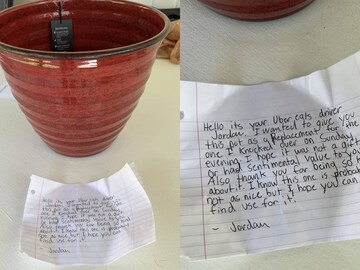 Hello its your Uber eats driver
Jordan. I wanted to give you
this pot as a Replacement for the
one I knocked over on Sunday
evening. I hope it was not a gift
or had sentimental value to you.
Also thank you for being so
about it. I know this one is probab
not as nice but I hope you can
find use for it!
- Jordan